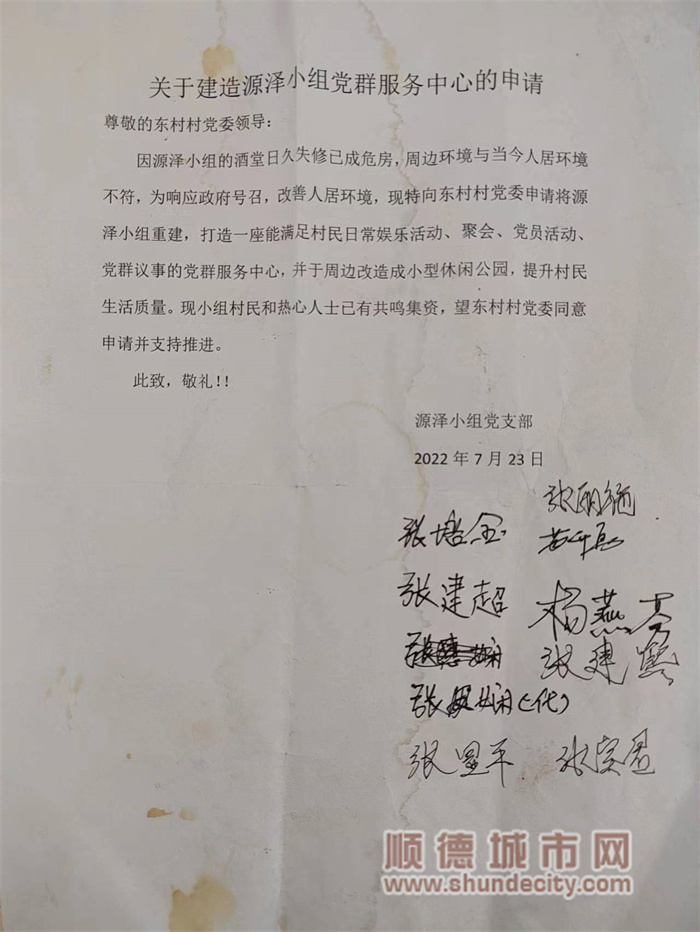 关于建造源泽小组党群服务中心的申请
尊敬的东村村党委领导：
因源泽小组的酒堂日久失修已成危房，周边环境与当今人居环境
不符，为响应政府号召，改善人居环境，现特向东村村党委申请将源
泽小组重建，打造一座能满足村民日常娱乐活动、聚会、党员活动、
党群议事的党群服务中心，并于周边改造成小型休闲公园，提升村民
生活质量。现小组村民和热心人士已有共鸣集资，望东村村党委同意
申请并支持推进。
此致，敬礼！！
源泽小组党支部
2022 年 7 月 23 日
张培金
张建超 杨燕芬
张建
张 娴（代）
张显平 张
顺德城市网
www.shundecity.com